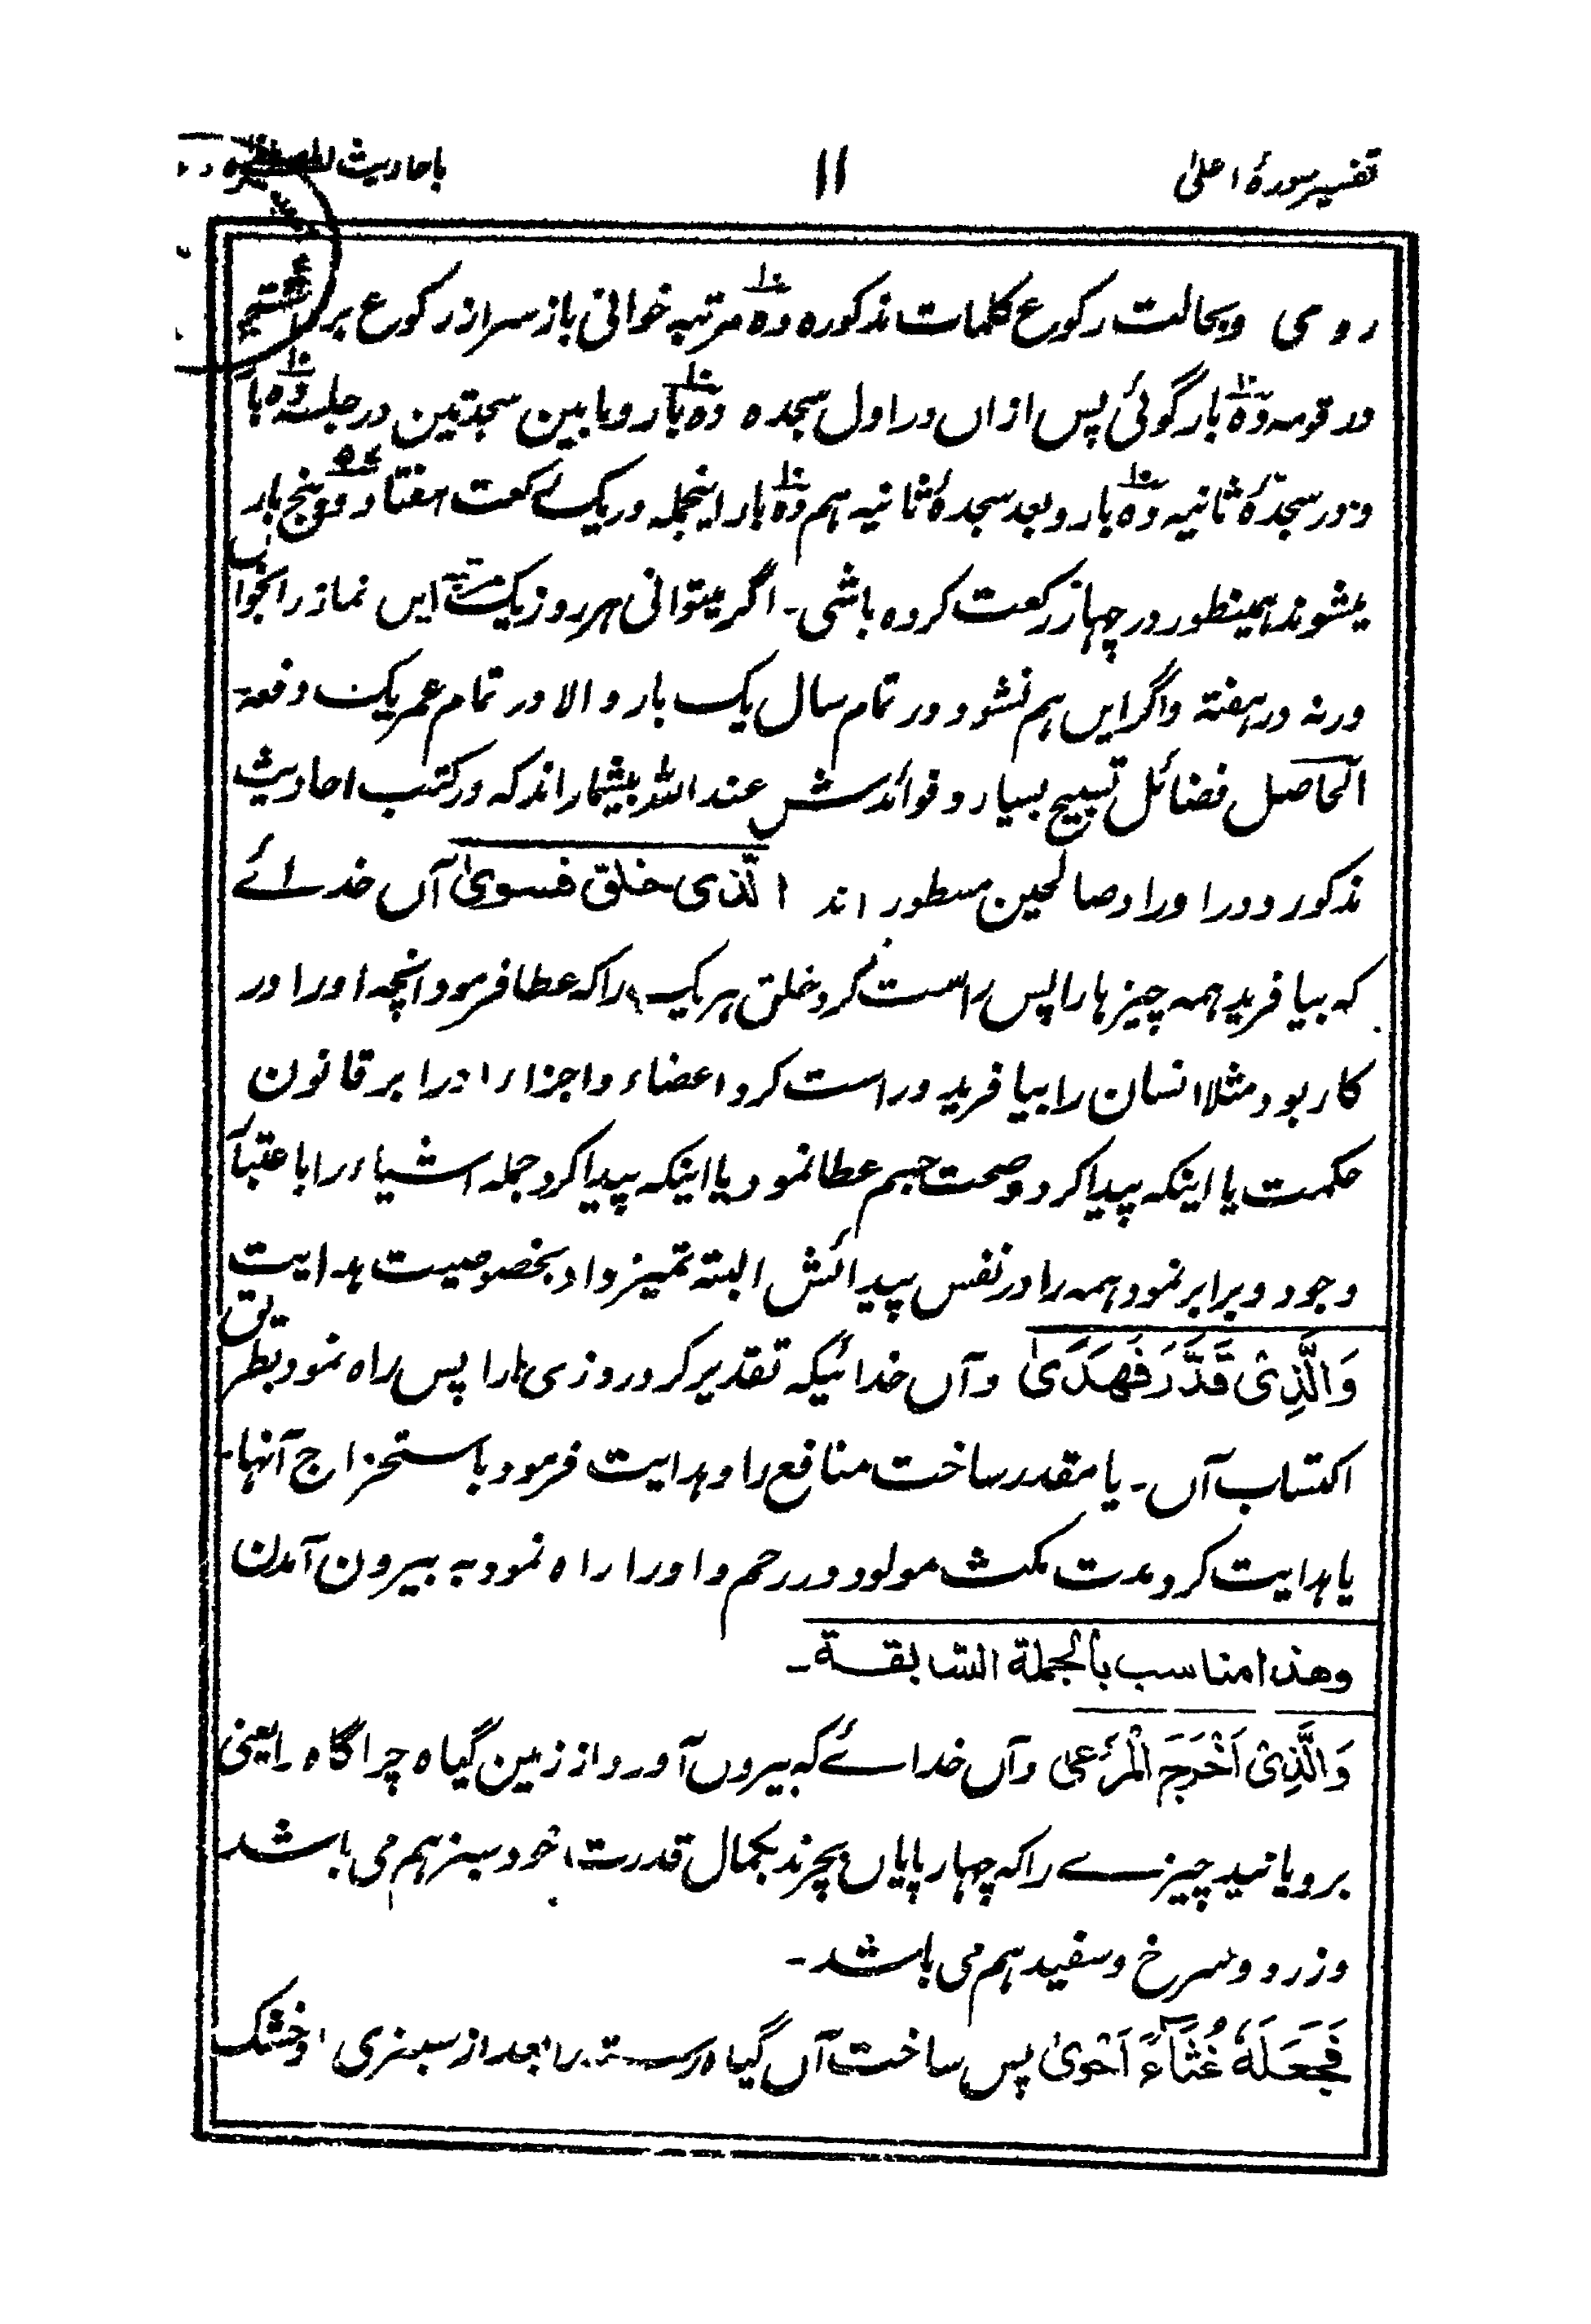 تفسیر سورۂ اعلیٰ
۱۱
باحادیث
روی وبحالت رکوع کلمات مذکورہ دہ مرتبہ خوانی باز سر از رکوع بر
در قومہ دہ بار گوئی پس ازاں در اول سجدہ دہ بار و مابین سجدتین در جلسہ دہ بار
و در سجدۂ ثانیہ دہ بار و بعد سجدۂ ثانیہ ہم دہ بار اینجملہ در یک رکعت ہفتاد و پنج بار
میشوند ہمینطور در چہار رکعت کردہ باشی۔ اگر میتوانی ہر روز یک مرتبہ ایں نماز را بخواں
ورنہ در ہفتہ و اگر ایں ہم نشود در تمام سال یک بار و الا در تمام عمر یک دفعۃ
الحاصل فضائل تسبیح بسیار و فوائدش عند اللہ بیشمار اند کہ در کتب احادیث
مذکور و در اوراد صالحین مسطور اند الّذی خلق فسویٰ آں خدائے
کہ بیافرید ہمہ چیزہا را پس راست کرد خلق ہر یک را کہ عطا فرمود انچہ او را در
کار بود مثلا انسان را بیافرید و راست کرد اعضاء و اجزاء او را بر قانون
حکمت یا اینکہ پیدا کرد و صحت جسم عطا نمود یا اینکہ پیدا کرد جملہ اشیاء را باعتبار
وجود و برابر نمود ہمہ را در نفس پیدائش البتہ تمیز داد بخصوصیت ہدایت
وَالَّذِیْ قَدَّرَ فَهَدَیٰ و آں خدائیکہ تقدیر کرد روزی ہا را پس راہ نمود بطریق
اکتساب آں۔ یا مقدر ساخت منافع را و ہدایت فرمود باستخراج آنہا۔
یا ہدایت کرد مدت مکث مولود در رحم و او را راہ نمود بہ بیرون آمدن
وهذا مناسب بالجملة السّابقة۔
وَالَّذِیْ اَخْرَجَ الْمَرْعیٰ و آں خدائے کہ بیروں آورد از زمین گیاہ چراگاہ یعنی
برویانید چیزے را کہ چہار پایاں بچرند بکمال قدرت خود سبز ہم می باشد
و زرد و سرخ و سفید ہم می باشد۔
فَجَعَلَهٗ غُثَآءً اَحْویٰ پس ساخت آں گیاہ رستہ را بعد از سبزی و خشک